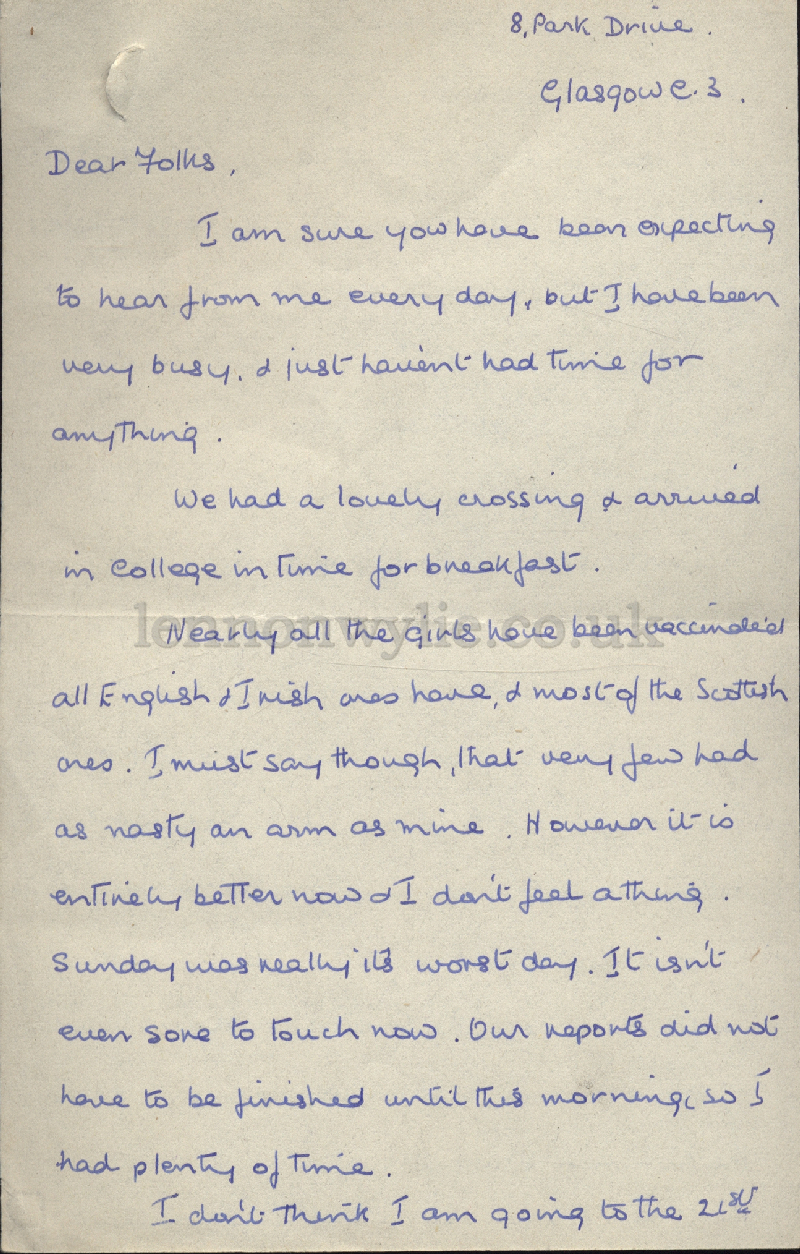 8, Park Drive.
Glasgow C.3.
Dear Folks,
I am sure you have been expecting
to hear from me every day, but I have been
very busy, & just haven't had time for
anything.
We had a lovely crossing & arrived
in College in time for breakfast.
lennonwylie.co.uk
Nearly all the girls have been vaccinated
all English & Irish ones have, & most of the Scottish
ones. I must say though, that very few had
as nasty an arm as mine. However it is
entirely better now & I don't feel a thing.
Sunday was really its worst day. It isn't
even sore to touch now. Our reports did not
have to be finished until this morning, so I
had plenty of time.
I don't think I am going to the 21st